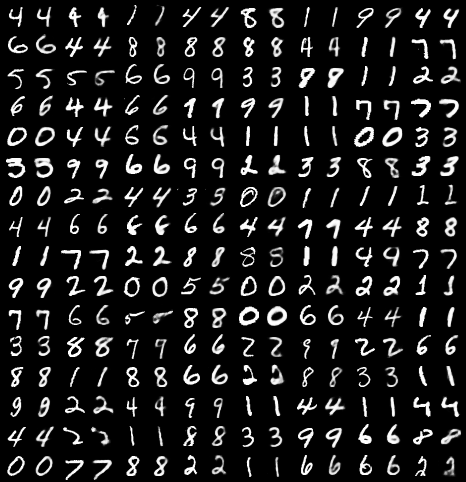 4 4 4 4 1 1 4 4 8 8 1 1 9 9 4 4
6 6 4 4 8 8 8 8 8 8 4 4 1 1 7 7
5 5 5 5 6 6 9 9 3 3 8 8 1 1 2 2
6 6 4 4 6 6 1 1 9 9 1 1 7 7 7 7
0 0 4 4 6 6 4 4 1 1 1 1 0 0 3 3
3 3 9 9 6 6 9 9 2 2 3 3 8 8 3 3
0 0 2 2 4 4 3 5 0 0 1 1 1 1 1 1
4 4 6 6 6 6 6 6 4 4 9 9 4 4 8 8
1 1 7 7 2 2 8 8 8 8 1 1 9 9 7 7
9 9 2 2 0 0 5 5 0 0 2 2 2 2 1 1
7 7 6 6 5 5 8 8 0 0 6 6 4 4 1 1
3 3 8 8 7 7 6 6 2 2 9 9 2 2 6 6
8 8 1 1 8 8 6 6 2 2 8 8 3 3 1 1
9 8 2 2 4 4 9 9 1 1 4 4 1 1 4 4
4 4 2 2 1 1 8 8 3 3 9 9 6 6 8 8
0 0 7 7 8 8 2 2 1 1 6 6 6 6 2 2